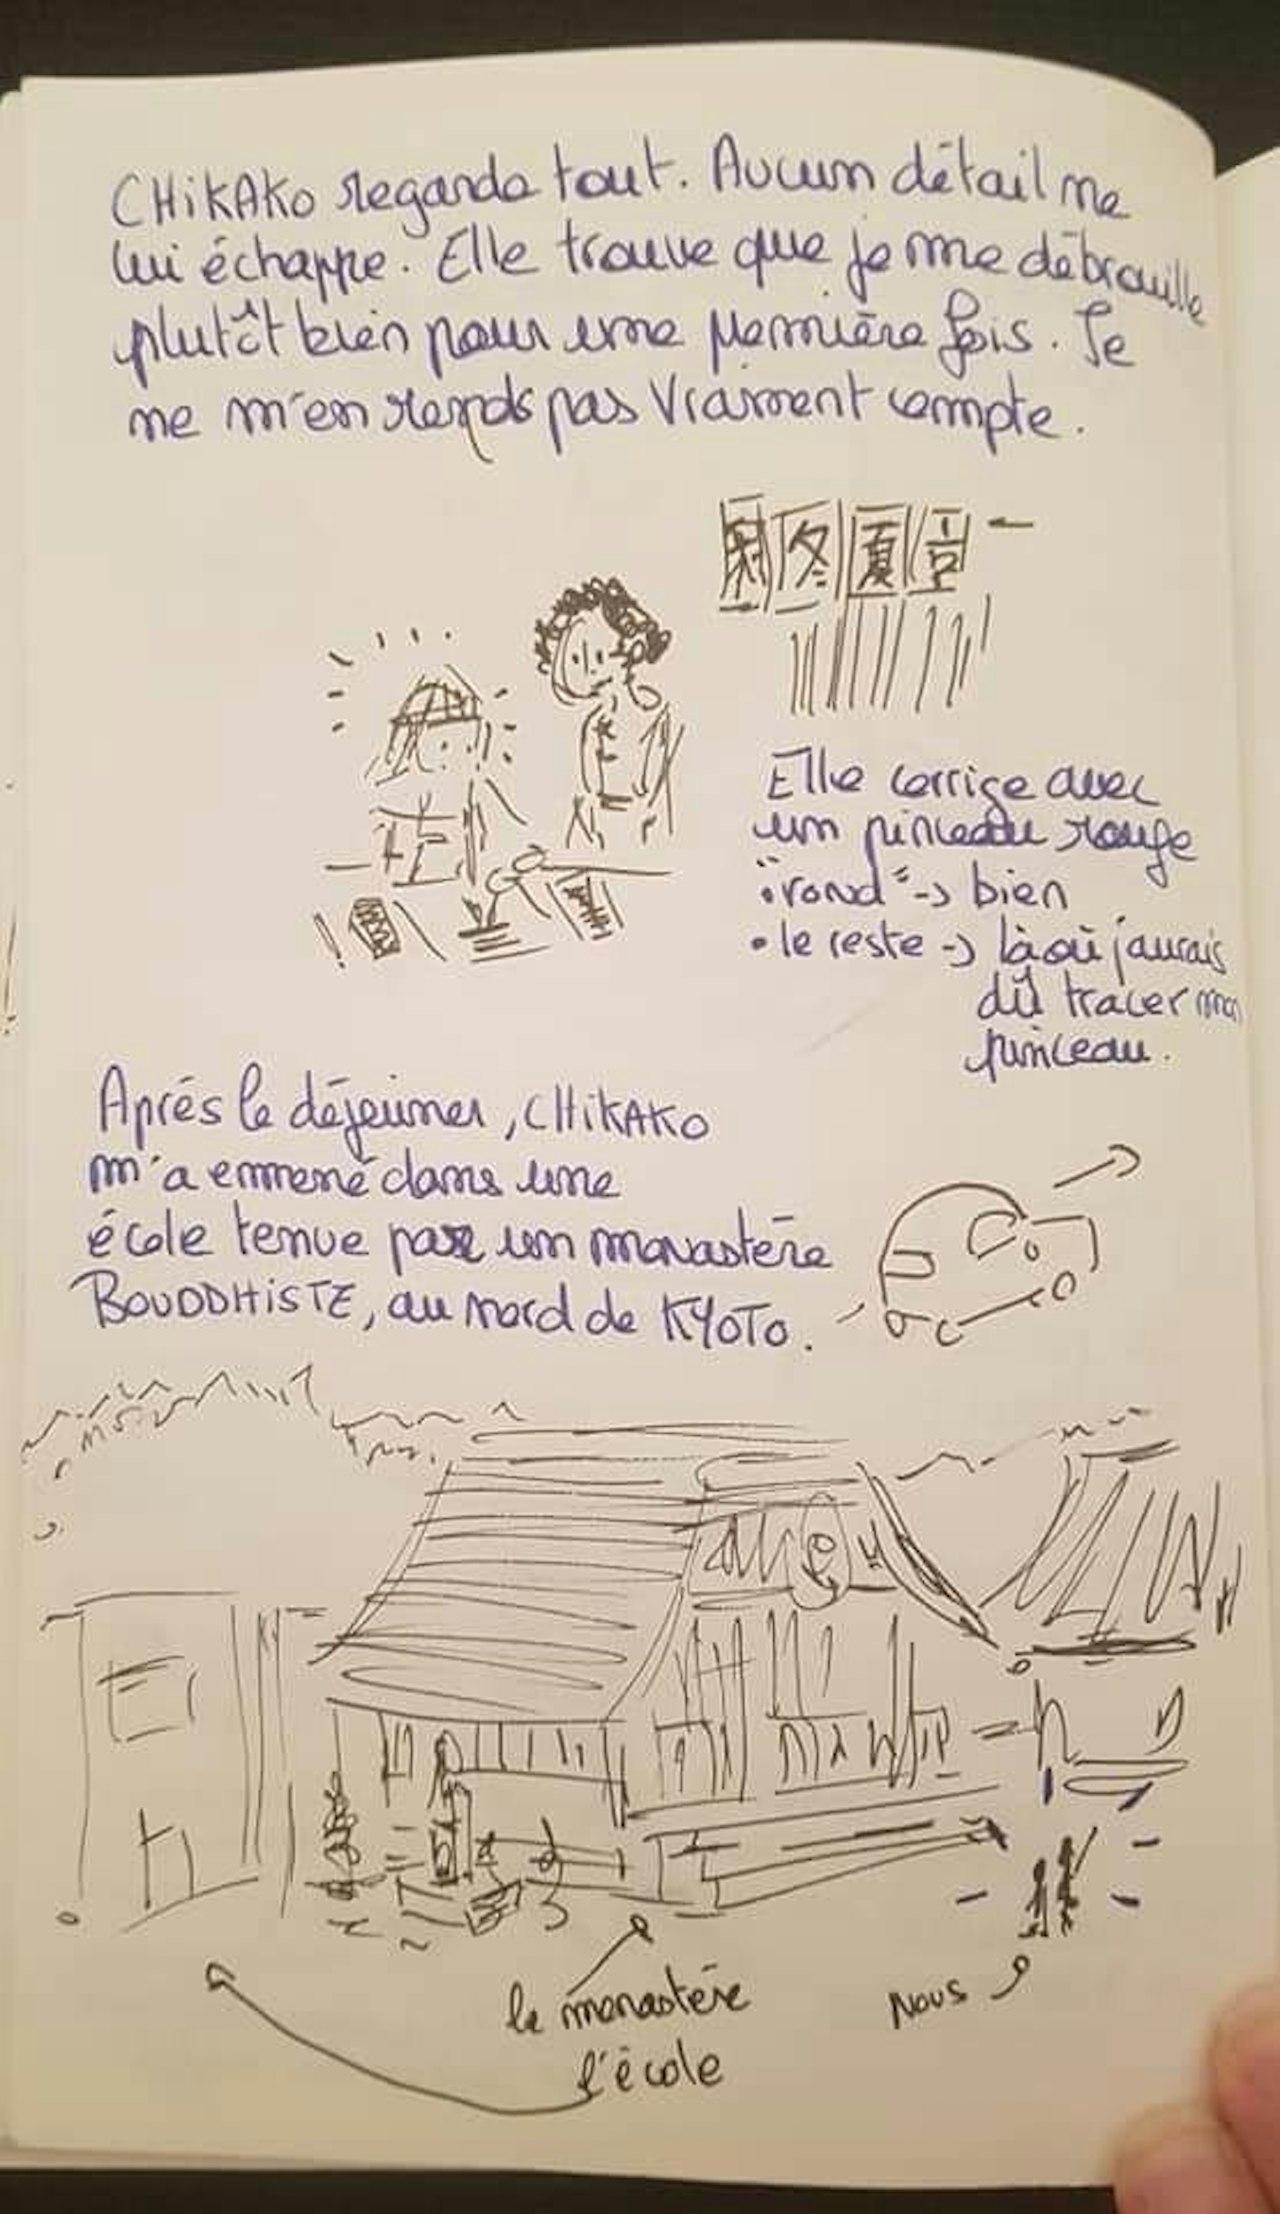 CHiKAKO regarde tout. Aucun détail ne
lui échappe. Elle trouve que je me débrouille
plutôt bien pour une première fois. Je
ne m'en rends pas vraiment compte.
冬 夏
Elle corrige avec
un pinceau rouge
• "rond" -> bien
• le reste -> là où j'aurais
dû tracer mon
pinceau.
Après le déjeuner, CHiKAKO
m'a emmené dans une
école tenue par un monastère
BOUDDHiSTE, au nord de KYOTO.
le monastère
nous
l'école